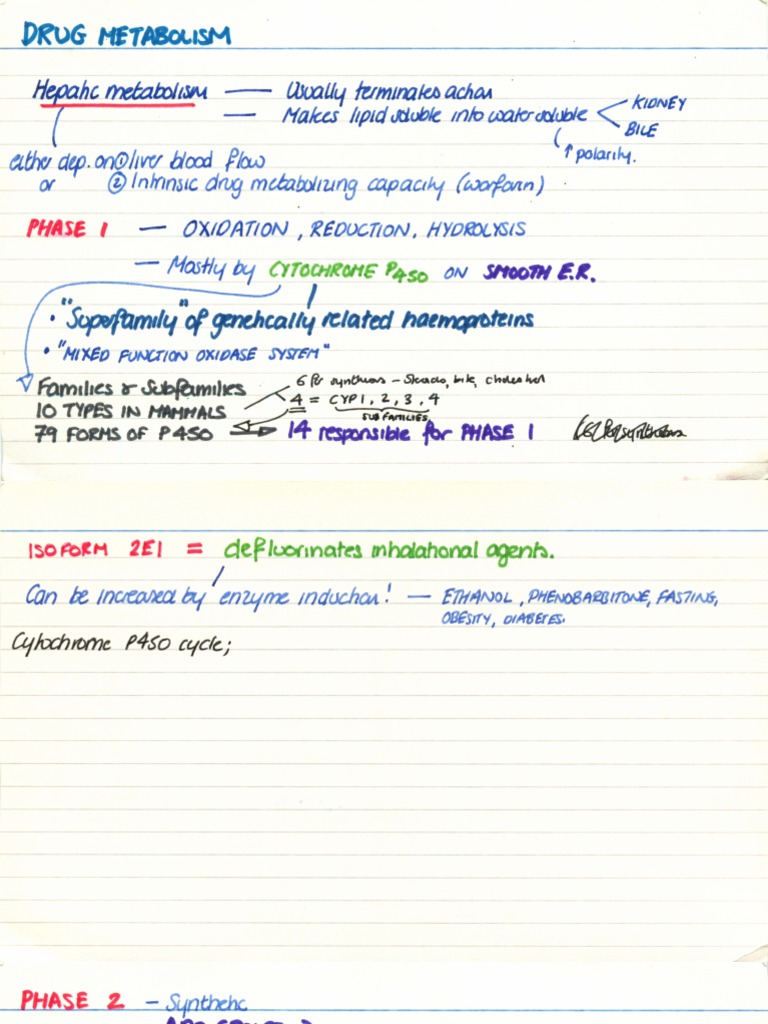 DRUG METABOLISM
Hepatic metabolism — Usually terminates action
— Makes lipid soluble into water soluble < KIDNEY
BILE
↑ polarity.
either dep. on ① liver blood flow
or ② Intrinsic drug metabolizing capacity (warfarin)
PHASE 1 — OXIDATION, REDUCTION, HYDROLYSIS
— Mostly by CYTOCHROME P450 ON SMOOTH E.R.
• "Superfamily" of genetically related haemoproteins
• "MIXED FUNCTION OXIDASE SYSTEM"
Families & Subfamilies
6 for synthesis - Steroids, bile, cholesterol
10 TYPES IN MAMMALS
4 = CYP 1, 2, 3, 4
SUBFAMILIES
79 FORMS OF P450
14 responsible for PHASE 1
ISOFORM 2E1 = defluorinates inhalational agents.
Can be increased by enzyme induction! — ETHANOL, PHENOBARBITONE, FASTING,
OBESITY, DIABETES.
Cytochrome P450 cycle;
PHASE 2 - Synthetic